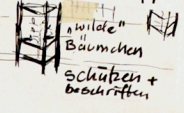 „wilde"
Bäumchen
schützen +
beschriften